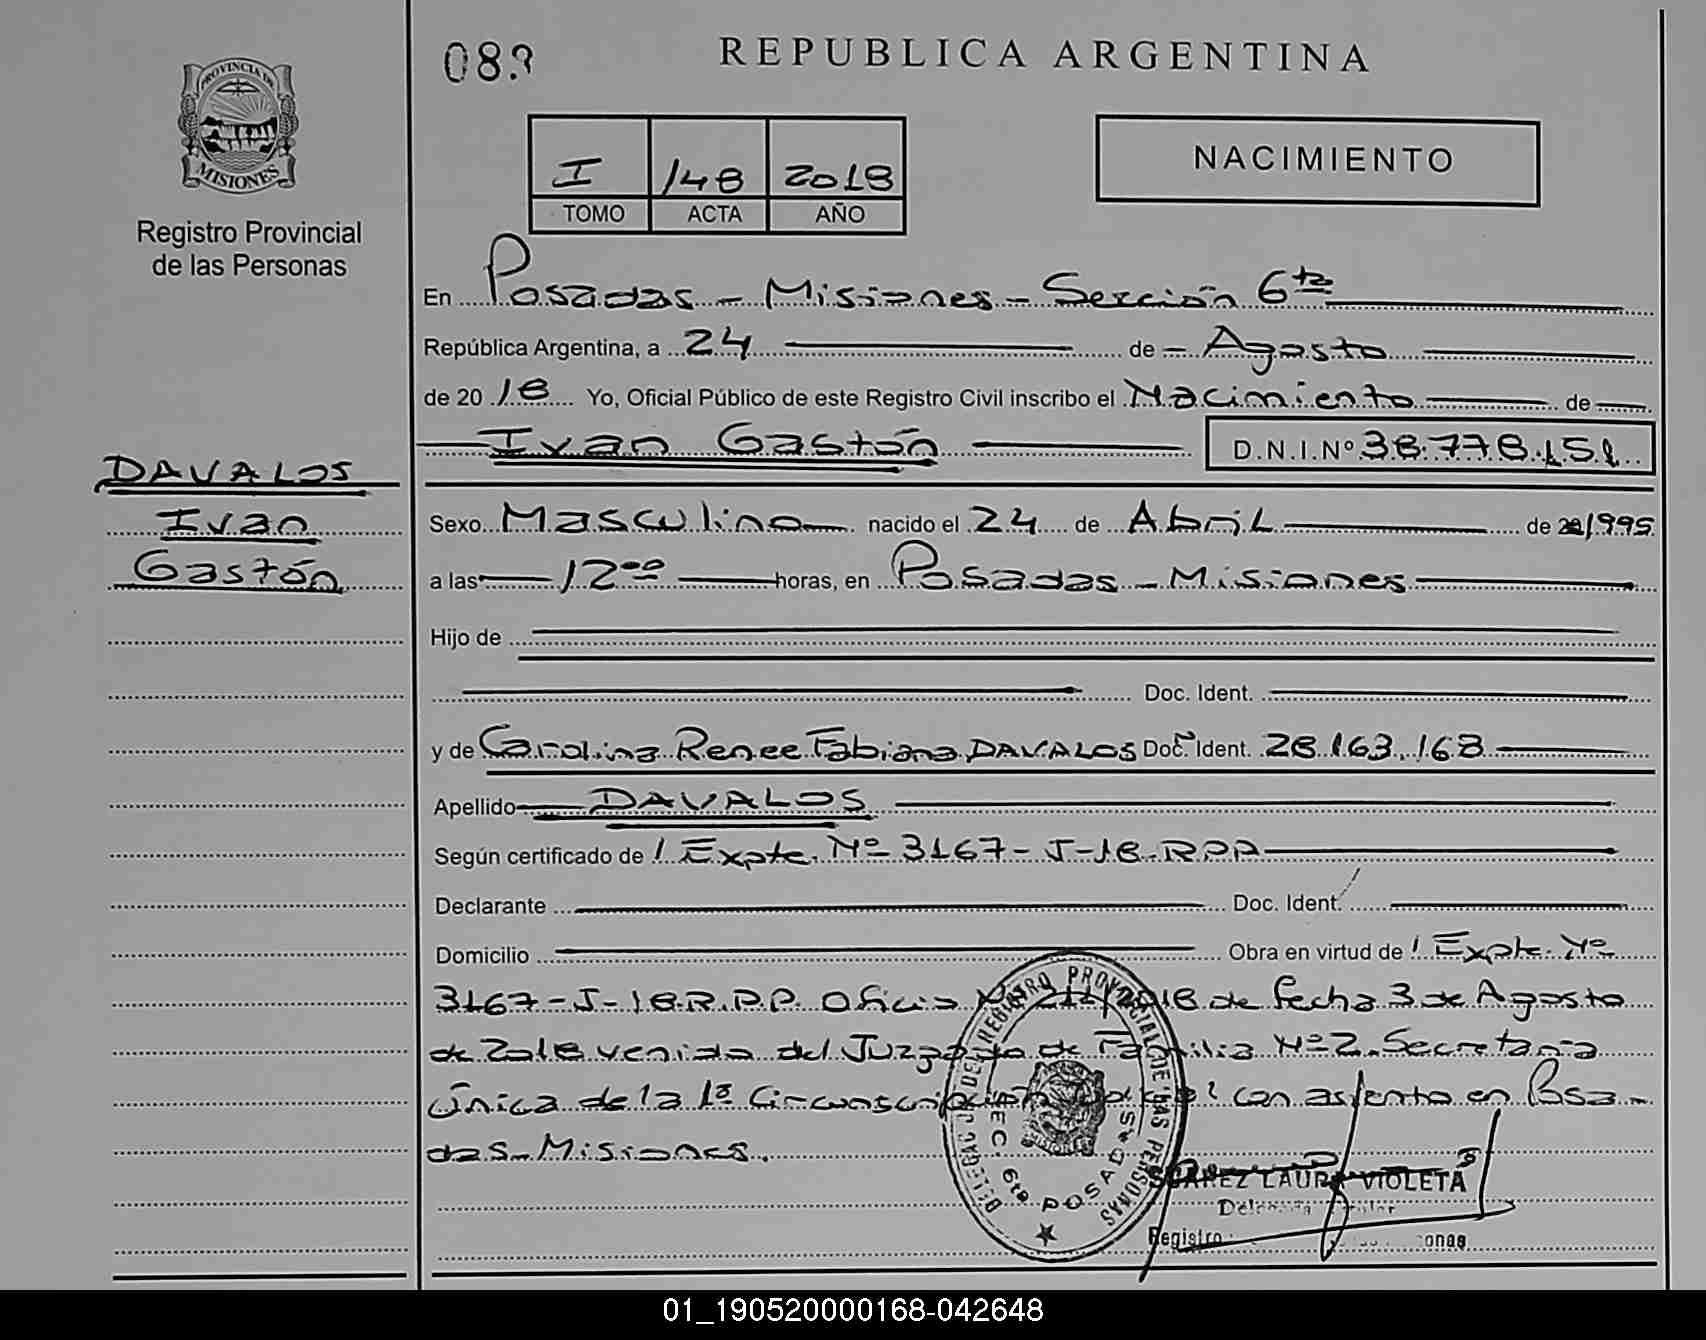 083
REPUBLICA ARGENTINA
PROVINCIA DE
MISIONES
Registro Provincial
de las Personas
I 148 2018
TOMO ACTA AÑO
NACIMIENTO
En Posadas - Misiones - Sección 6ta
República Argentina, a 24 de - Agosto
de 2018 Yo, Oficial Público de este Registro Civil inscribo el Nacimiento de
Ivan Gastón D.N.I.Nº 38.778.151
DAVALOS
Ivan
Gastón
Sexo Masculino nacido el 24 de Abril de 1995
a las 12 00 horas, en Posadas - Misiones
Hijo de
Doc. Ident.
y de Carolina Renee Fabiana DAVALOS Doc. Ident. 28.163.168
Apellido DAVALOS
Según certificado de ! Expte. Nº 3167-J-18-RPP
Declarante Doc. Ident.
Domicilio Obra en virtud de ! Expte. Nº
3167-J-18.R.P.P. Oficio Nº /2018 de fecha 3 de Agosto
de 2018 venido del Juzgado de Familia Nº 2. Secretaría
Única de la 1ª Circunscripción con asiento en Posa-
das - Misiones.
DELEGACION DEL REGISTRO PROVINCIAL DE LAS PERSONAS
SEC. 6ta POSADAS
SUAREZ LAURA VIOLETA
Registro
01_190520000168-042648